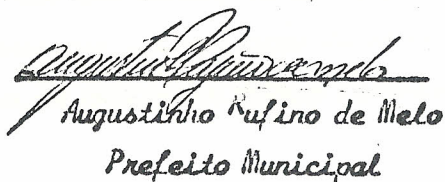 Augustinho Rufino de Melo
Prefeito Municipal